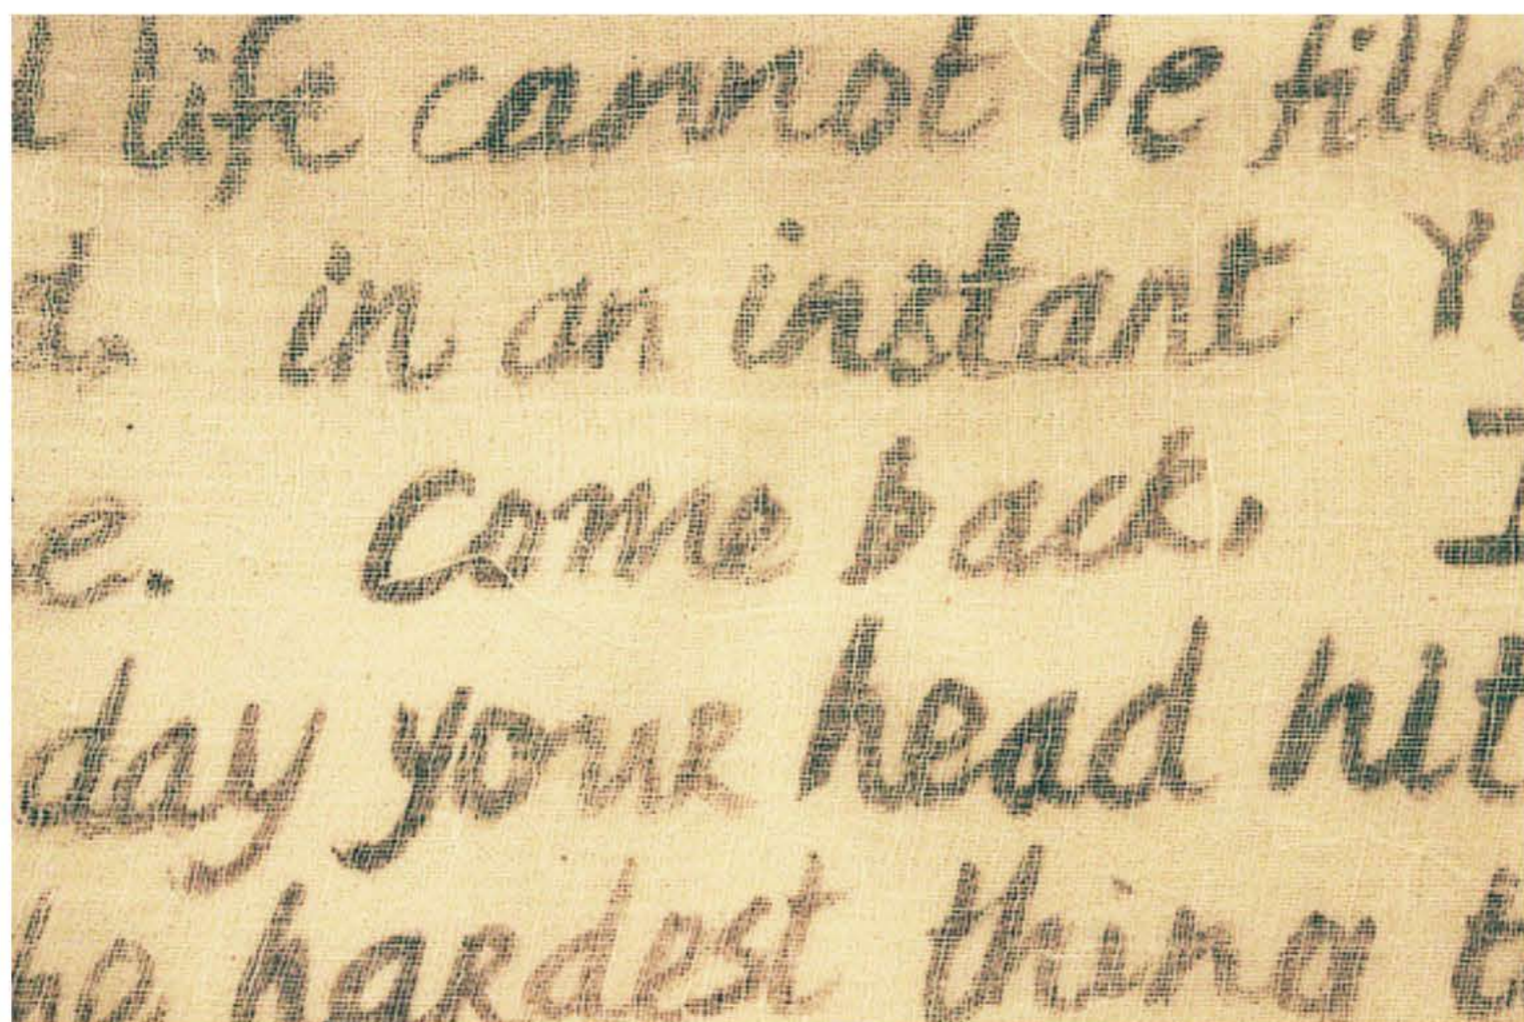 life cannot be
in an instant
come back,
day your head hit
hardest thing